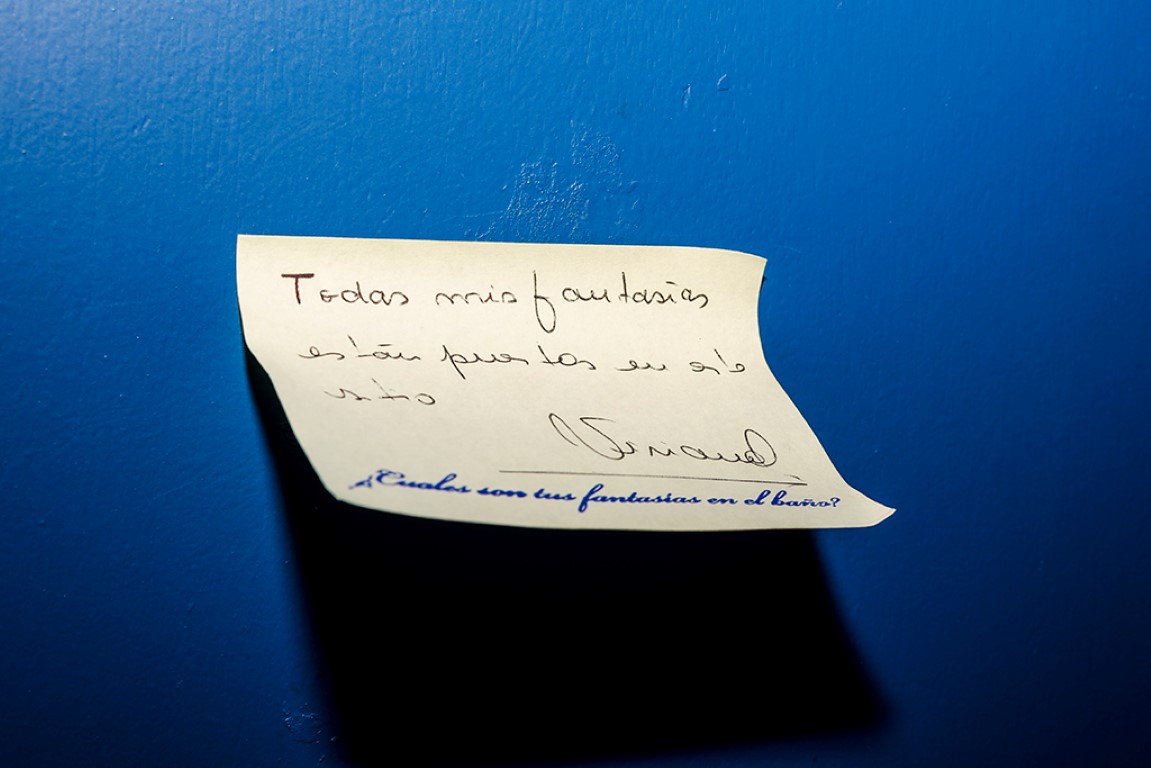 Todas mis fantasías
están puestas en este
sitio
¿Cuales son tus fantasias en el baño?